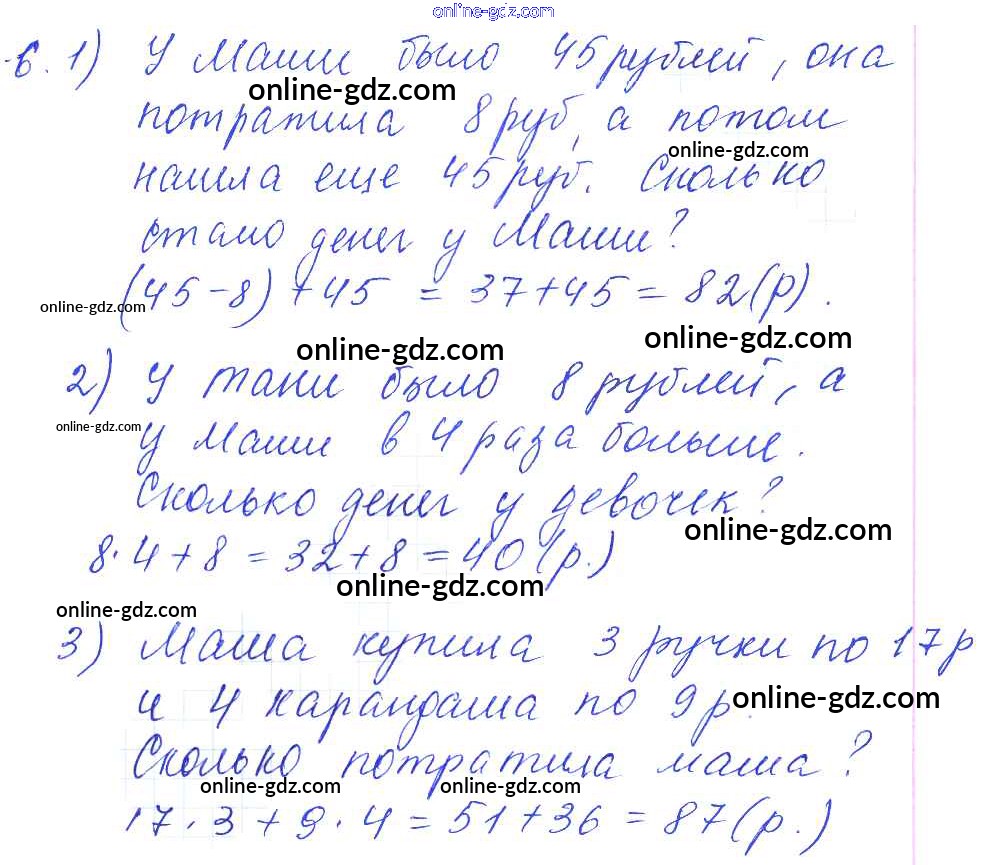 online-gdz.com
6. 1) У Маши было 45 рублей, она
online-gdz.com
потратила 8 руб, а потом
online-gdz.com
нашла еще 45 руб. Сколько
стало денег у Маши?
(45-8) + 45 = 37+45 = 82(р).
online-gdz.com
online-gdz.com
online-gdz.com
2) У тани было 8 рублей, а
online-gdz.com
у Маши в 4 раза больше.
Сколько денег у девочек?
online-gdz.com
8·4+8 = 32+8 = 40(р.)
online-gdz.com
online-gdz.com
3) Маша купила 3 ручки по 17р
и 4 карандаша по 9р.
online-gdz.com
Сколько потратила маша?
online-gdz.com
online-gdz.com
17·3+9·4 = 51+36 = 87(р.)